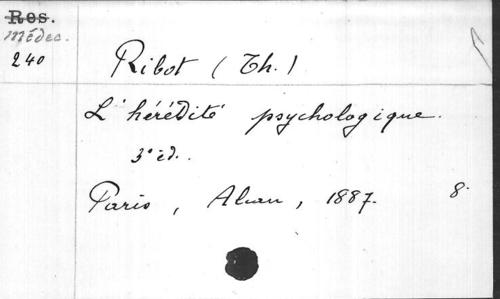 Res.
Médec.
240
Ribot (Th.)
L'hérédité psychologique.
3e éd.
Paris, Alcan, 1887. 8.